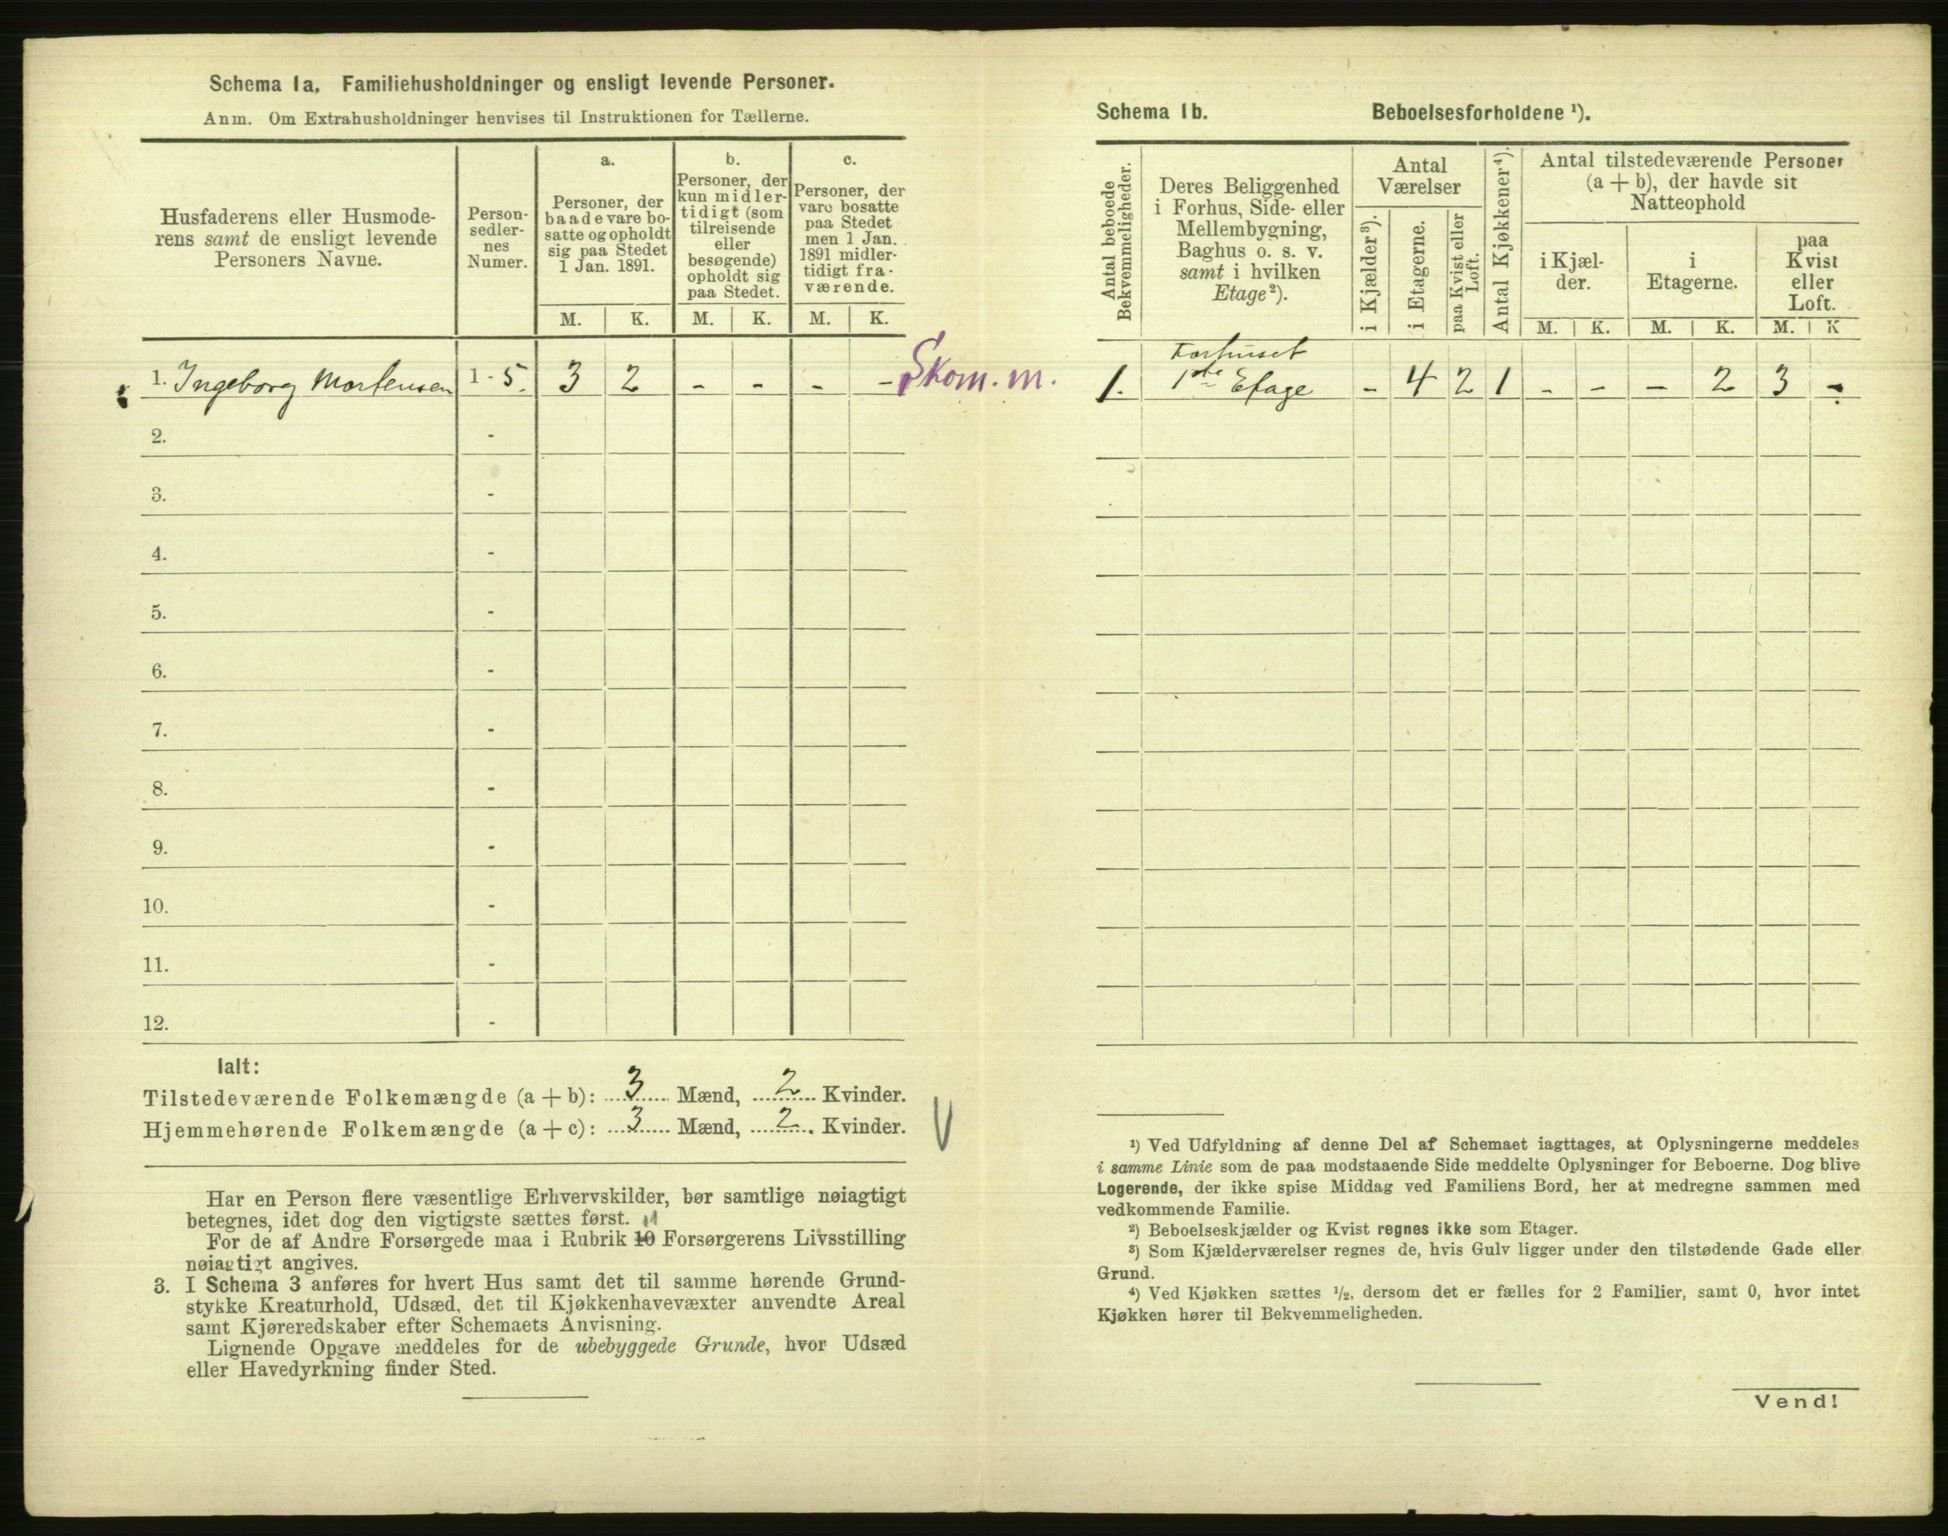 Schema 1a. Familiehusholdninger og ensligt levende Personer.
Anm. Om Extrahusholdninger henvises til Instruktionen for Tællerne.
Husfaderens eller Husmode-
rens samt de ensligt levende
Personers Navne.
Person-
sedler-
nes
Numer.
a.
Personer, der
baade vare bo-
satte og opholdt
sig paa Stedet
1 Jan. 1891.
M. K.
b.
Personer, der
kun midler-
tidigt (som
tilreisende
eller
besøgende)
opholdt sig
paa Stedet.
M. K.
c.
Personer, der
vare bosatte
paa Stedet
men 1 Jan.
1891 midler-
tidigt fra-
værende.
M. K.
1. Ingeborg Mortensen 1 - 5. 3 2 - - - - Skom. m.
2. -
3. -
4. -
5. -
6. -
7. -
8. -
9. -
10. -
11. -
12. -
Ialt:
Tilstedeværende Folkemængde (a + b): 3 Mænd, 2 Kvinder.
Hjemmehørende Folkemængde (a + c): 3 Mænd, 2 Kvinder.
Har en Person flere væsentlige Erhvervskilder, bør samtlige nøiagtigt
betegnes, idet dog den vigtigste sættes først. 11
For de af Andre Forsørgede maa i Rubrik 10 Forsørgerens Livsstilling
nøiagtigt angives.
3. I Schema 3 anføres for hvert Hus samt det til samme hørende Grund-
stykke Kreaturhold, Udsæd, det til Kjøkkenhavevæxter anvendte Areal
samt Kjøreredskaber efter Schemaets Anvisning.
Lignende Opgave meddeles for de ubebyggede Grunde, hvor Udsæd
eller Havedyrkning finder Sted.
Schema 1b. Beboelsesforholdene ¹).
Antal beboede
Bekvemmeligheder.
Deres Beliggenhed
i Forhus, Side- eller
Mellembygning,
Baghus o. s. v.
samt i hvilken
Etage²).
Antal
Værelser
i Kjælder³).
i Etagerne.
paa Kvist eller
Loft.
Antal Kjøkkener⁴).
Antal tilstedeværende Personer
(a + b), der havde sit
Natteophold
i Kjæl-
der.
M. K.
i
Etagerne.
M. K.
paa
Kvist
eller
Loft.
M. K
Forhuset
1. 1ste Etage - 4 2 1 - - - 2 3 -
¹) Ved Udfyldning af denne Del af Schemaet iagttages, at Oplysningerne meddeles
i samme Linie som de paa modstaaende Side meddelte Oplysninger for Beboerne. Dog blive
Logerende, der ikke spise Middag ved Familiens Bord, her at medregne sammen med
vedkommende Familie.
²) Beboelseskjælder og Kvist regnes ikke som Etager.
³) Som Kjælderværelser regnes de, hvis Gulv ligger under den tilstødende Gade eller
Grund.
⁴) Ved Kjøkken sættes ¹/₂, dersom det er fælles for 2 Familier, samt 0, hvor intet
Kjøkken hører til Bekvemmeligheden.
Vend!